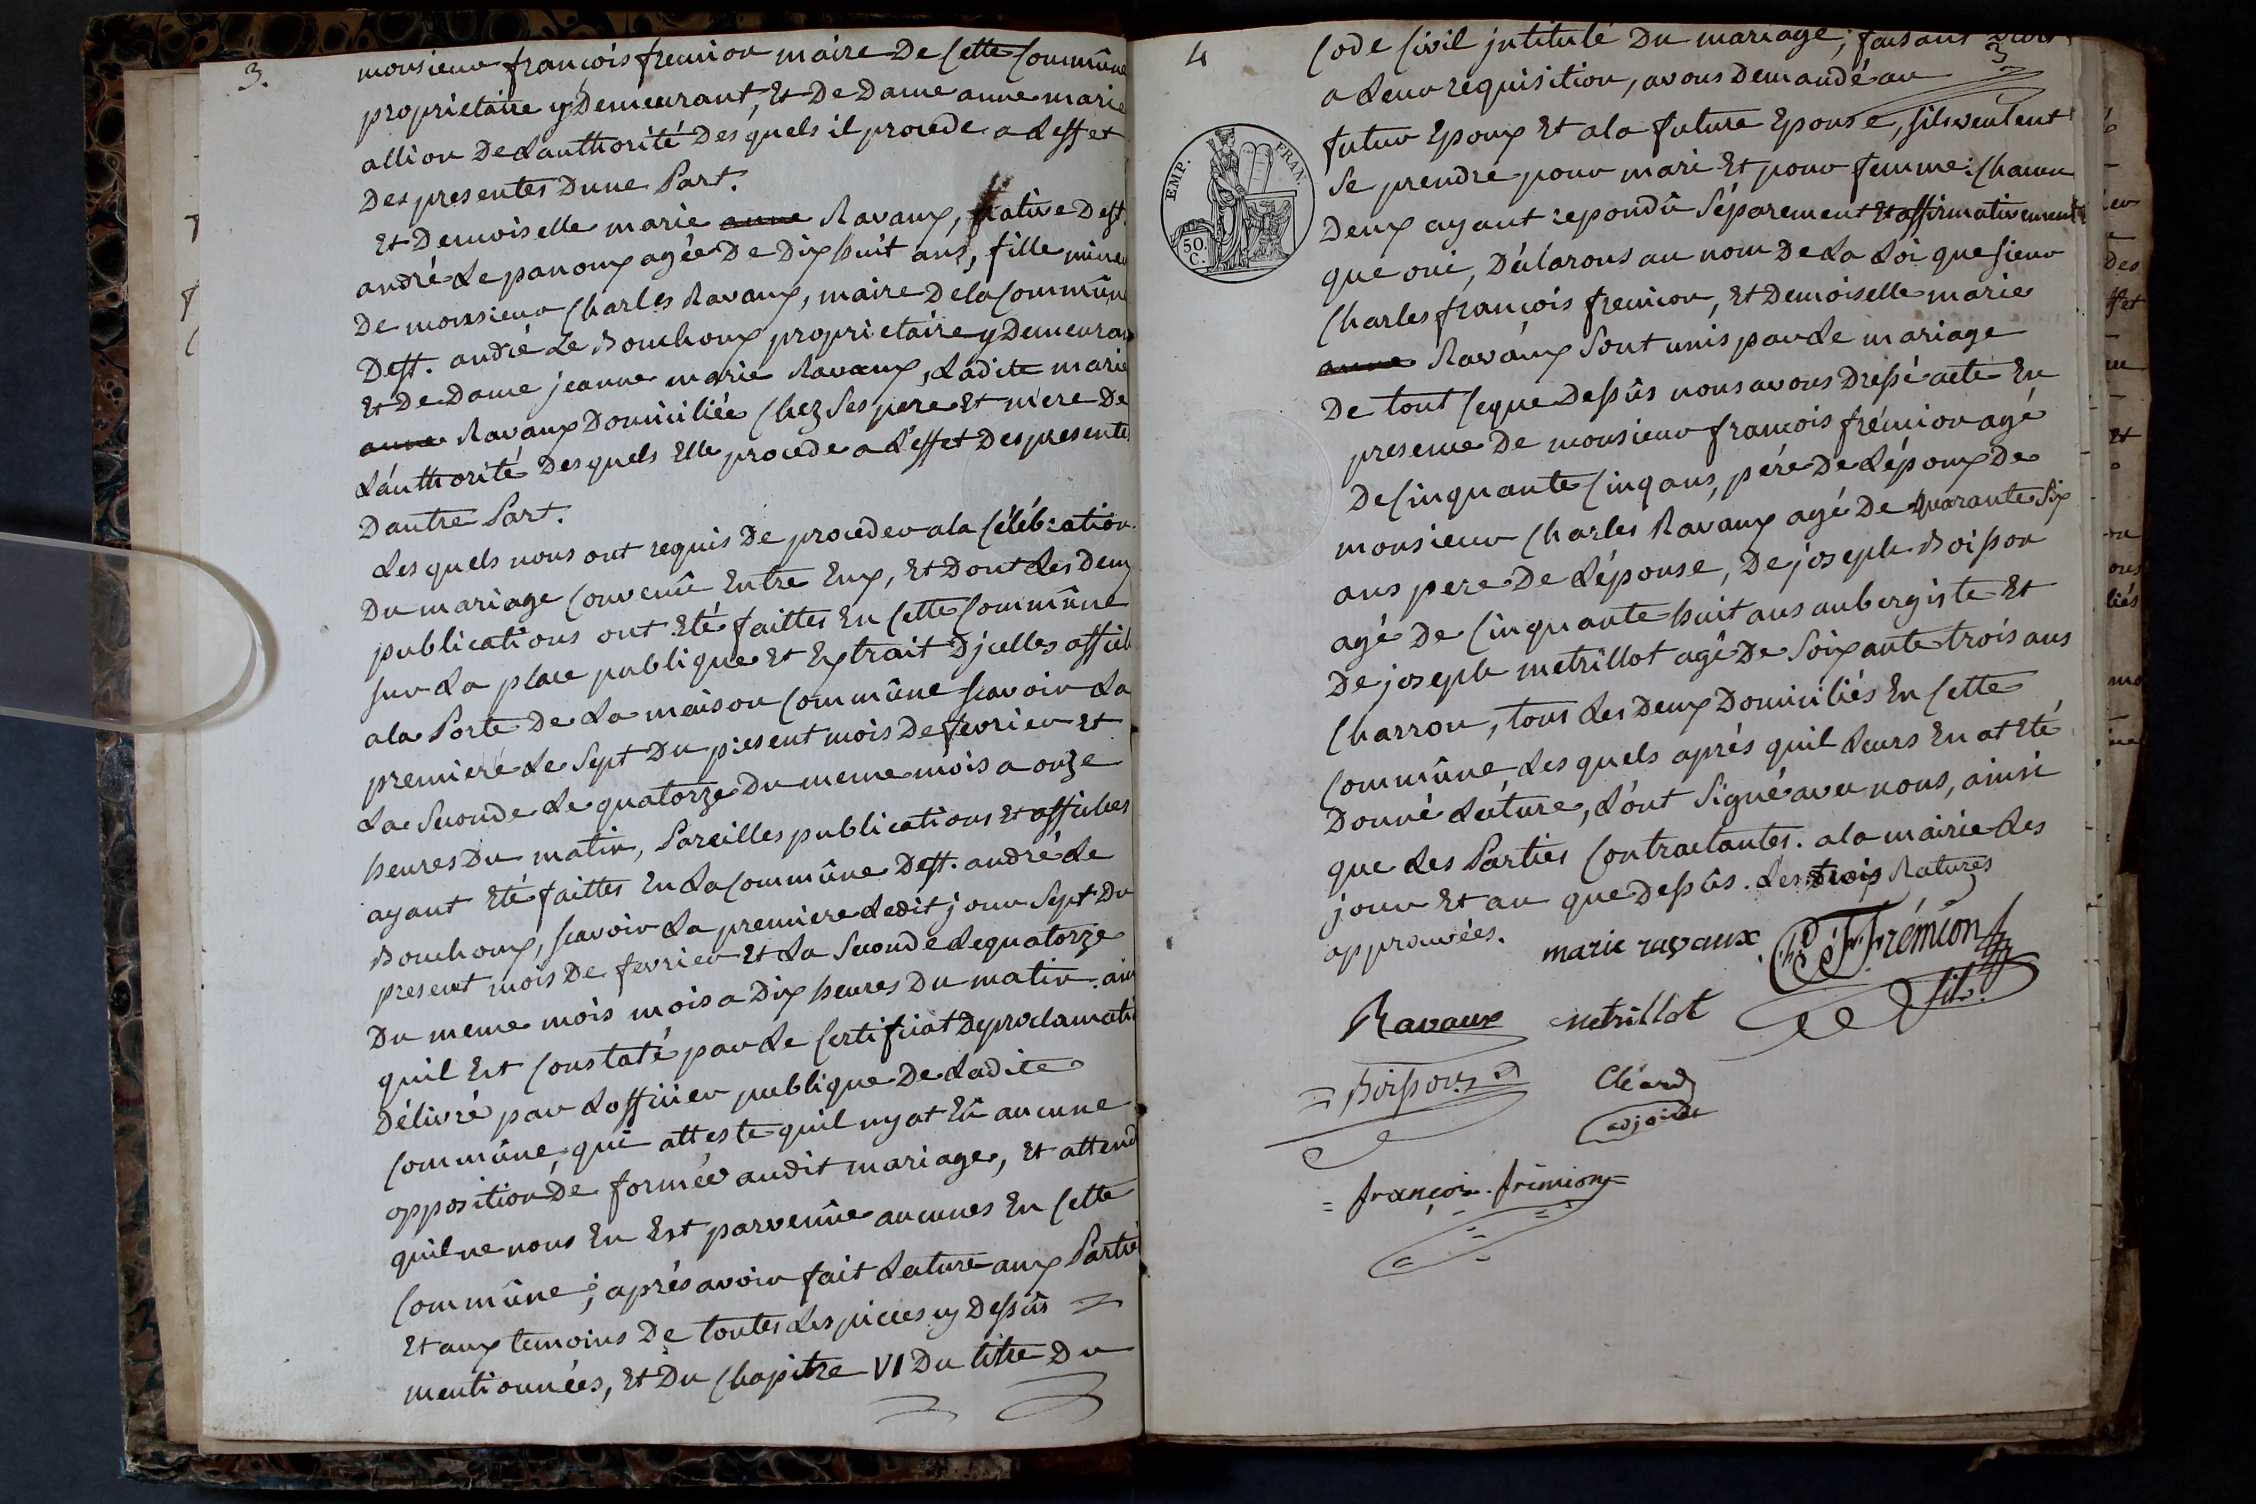 3.
monsieur françois fremion maire De Cette Commûne
proprietaire y Demeurant, Et De Dame anne marie
allion De Lauthorité Des quels il procede a Leffet
Des presentes Dune Part.
Et Demoiselle marie anne Ravaux, native De St.
andré Le panoux agée De Dix huit ans, fille mineu
De monsieur Charles Ravaux, maire De la Commûne
De St. andré Le Bouchoux proprietaire y Demeuran
Et De Dame jeanne marie Ravaux, Ladite marie
anne Ravaux Domiciliée Chez Ses pere Et mere De
Lauthorité Des quels Elle procede a L'effet Des presentes
Dautre Part.
Les quels nous ont requis De proceder a la Célébration
Du mariage Convenû Entre Eux, Et Dont Les Deux
publications ont Eté faittes En Cette Commûne
sur La place publique Et Extrait Djcelles affich
a la Porte De La maison Commûne Scavoir La
premiere Le Sept Du present mois De fevrier Et
La Seconde Le quatorze Du meme mois a onze
heures Du matin, Pareilles publications Et affiches
ayant Eté faittes En La Commûne De St. andré Le
Bouchoux, Scavoir La premiere Ledit jour Sept Du
present mois De fevrier Et La Seconde Le quatorze
Du meme mois mois a Dix heures Du matin. ain
quil Est Constaté par Le Certificat De proclamati
Délivré par Lofficier publique De Ladite
Commûne, qui atteste quil ny at Eû aucune
opposition De formée audit mariage, Et attend
quil ne nous En Est parvenûe aucunes En Cette
Commûne; aprés avoir fait Lecture aux Partie
Et aux temoins De toutes Les pieces cy Dessûs
mentionnées, Et Du Chapitre VI Du titre Du
4
3.
Code Civil jntitulé Du mariage; faisant Droit
a Leur requisition, avons Demandé au
futur Epoux Et a la future Epouse, sils veulent
Se prendre pour mari Et pour femme: Chacun
Deux ayant repondû Séparement Et affirmativement
que oui, Déclarons au nom De La Loi que sieur
Charles françois fremion, Et Demoiselle marie
anne Ravaux Sont unis par Le mariage
De tout Ce que Dessûs nous avons Dressé acte En
presence De monsieur francois frémion agé
De Cinquante Cinq ans, pére De Lépoux De
monsieur Charles Ravaux agé De Quarante Six
ans pere De Lépouse, De joseph Boisson
agé De Cinquante huit ans aubergiste Et
De joseph metrillot agé De Soixante trois ans
Charron, tous Les Deux Domiciliés En Cette
Commûne, Les quels aprés quil Leurs En at Eté
Donné Lecture, L'ont Signé avec nous, ainsi
que Les Parties Contractantes. a la mairie Les
jour Et an que Dessûs. Les trois Ratures
approuvées.
EMP. FRAN.
50. C.
marie ravaux Ch F Frémion
fils.
Ravaux metrillot
Boisson
Cléard
adjoint
françois frémion